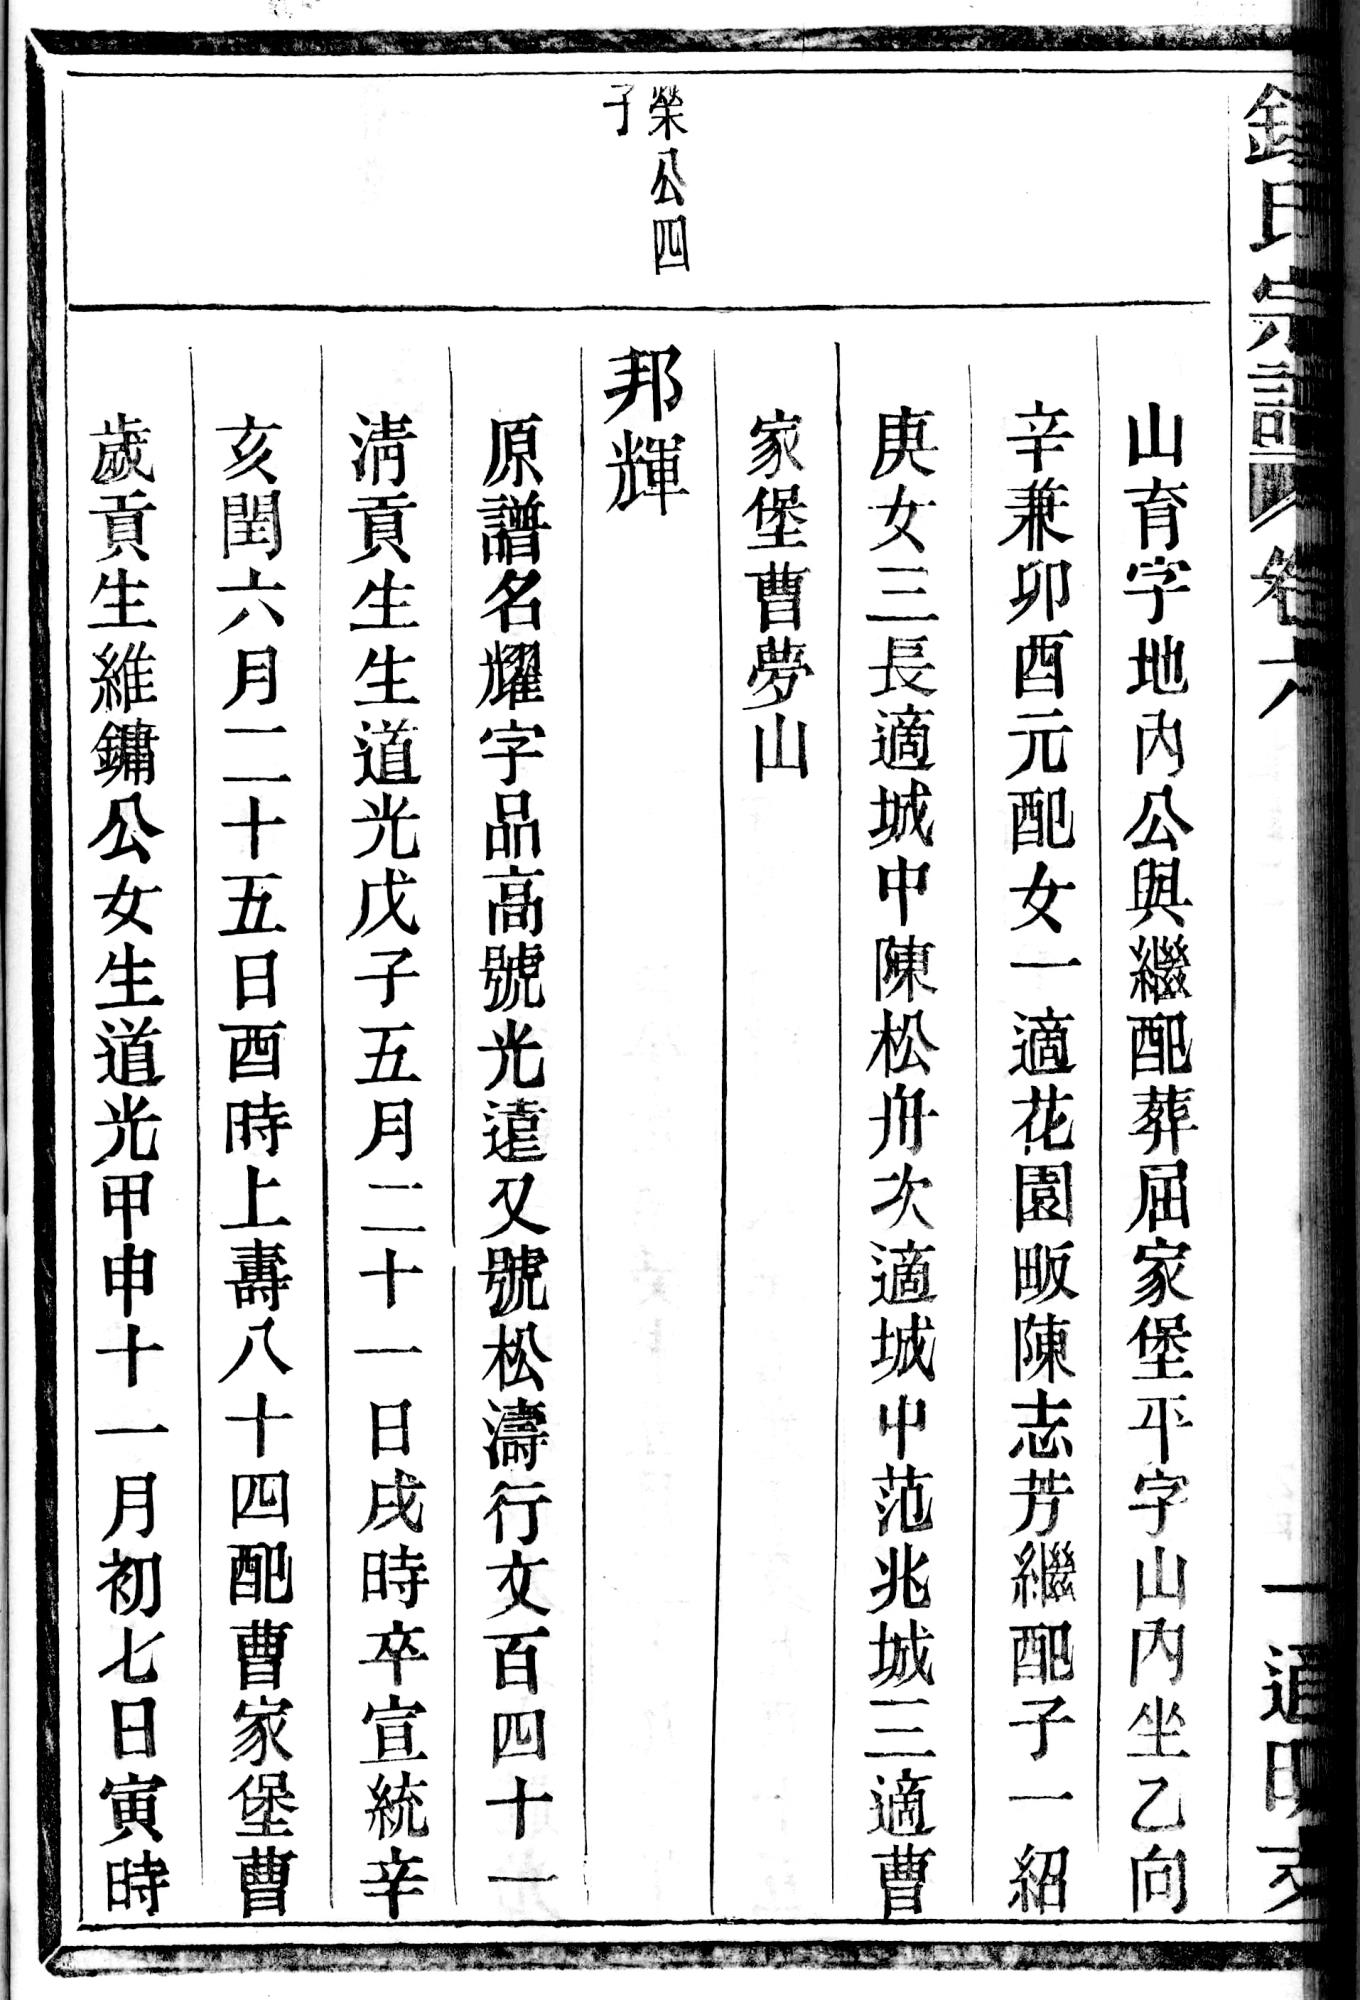 氏宗譜 卷六
山育字地內公與繼配葬屈家堡平字山內坐乙向
辛兼卯酉元配女一適花園畈陳志芳繼配子一紹
庚女三長適城中陳松舟次適城中范兆城三適曹
家堡曹夢山
榮公四
子
邦輝
原譜名耀字品高號光遠又號松濤行文百四十一
清貢生生道光戊子五月二十一日戌時卒宣統辛
亥閏六月二十五日酉時上壽八十四配曹家堡曹
歲貢生維鏞公女生道光甲申十一月初七日寅時